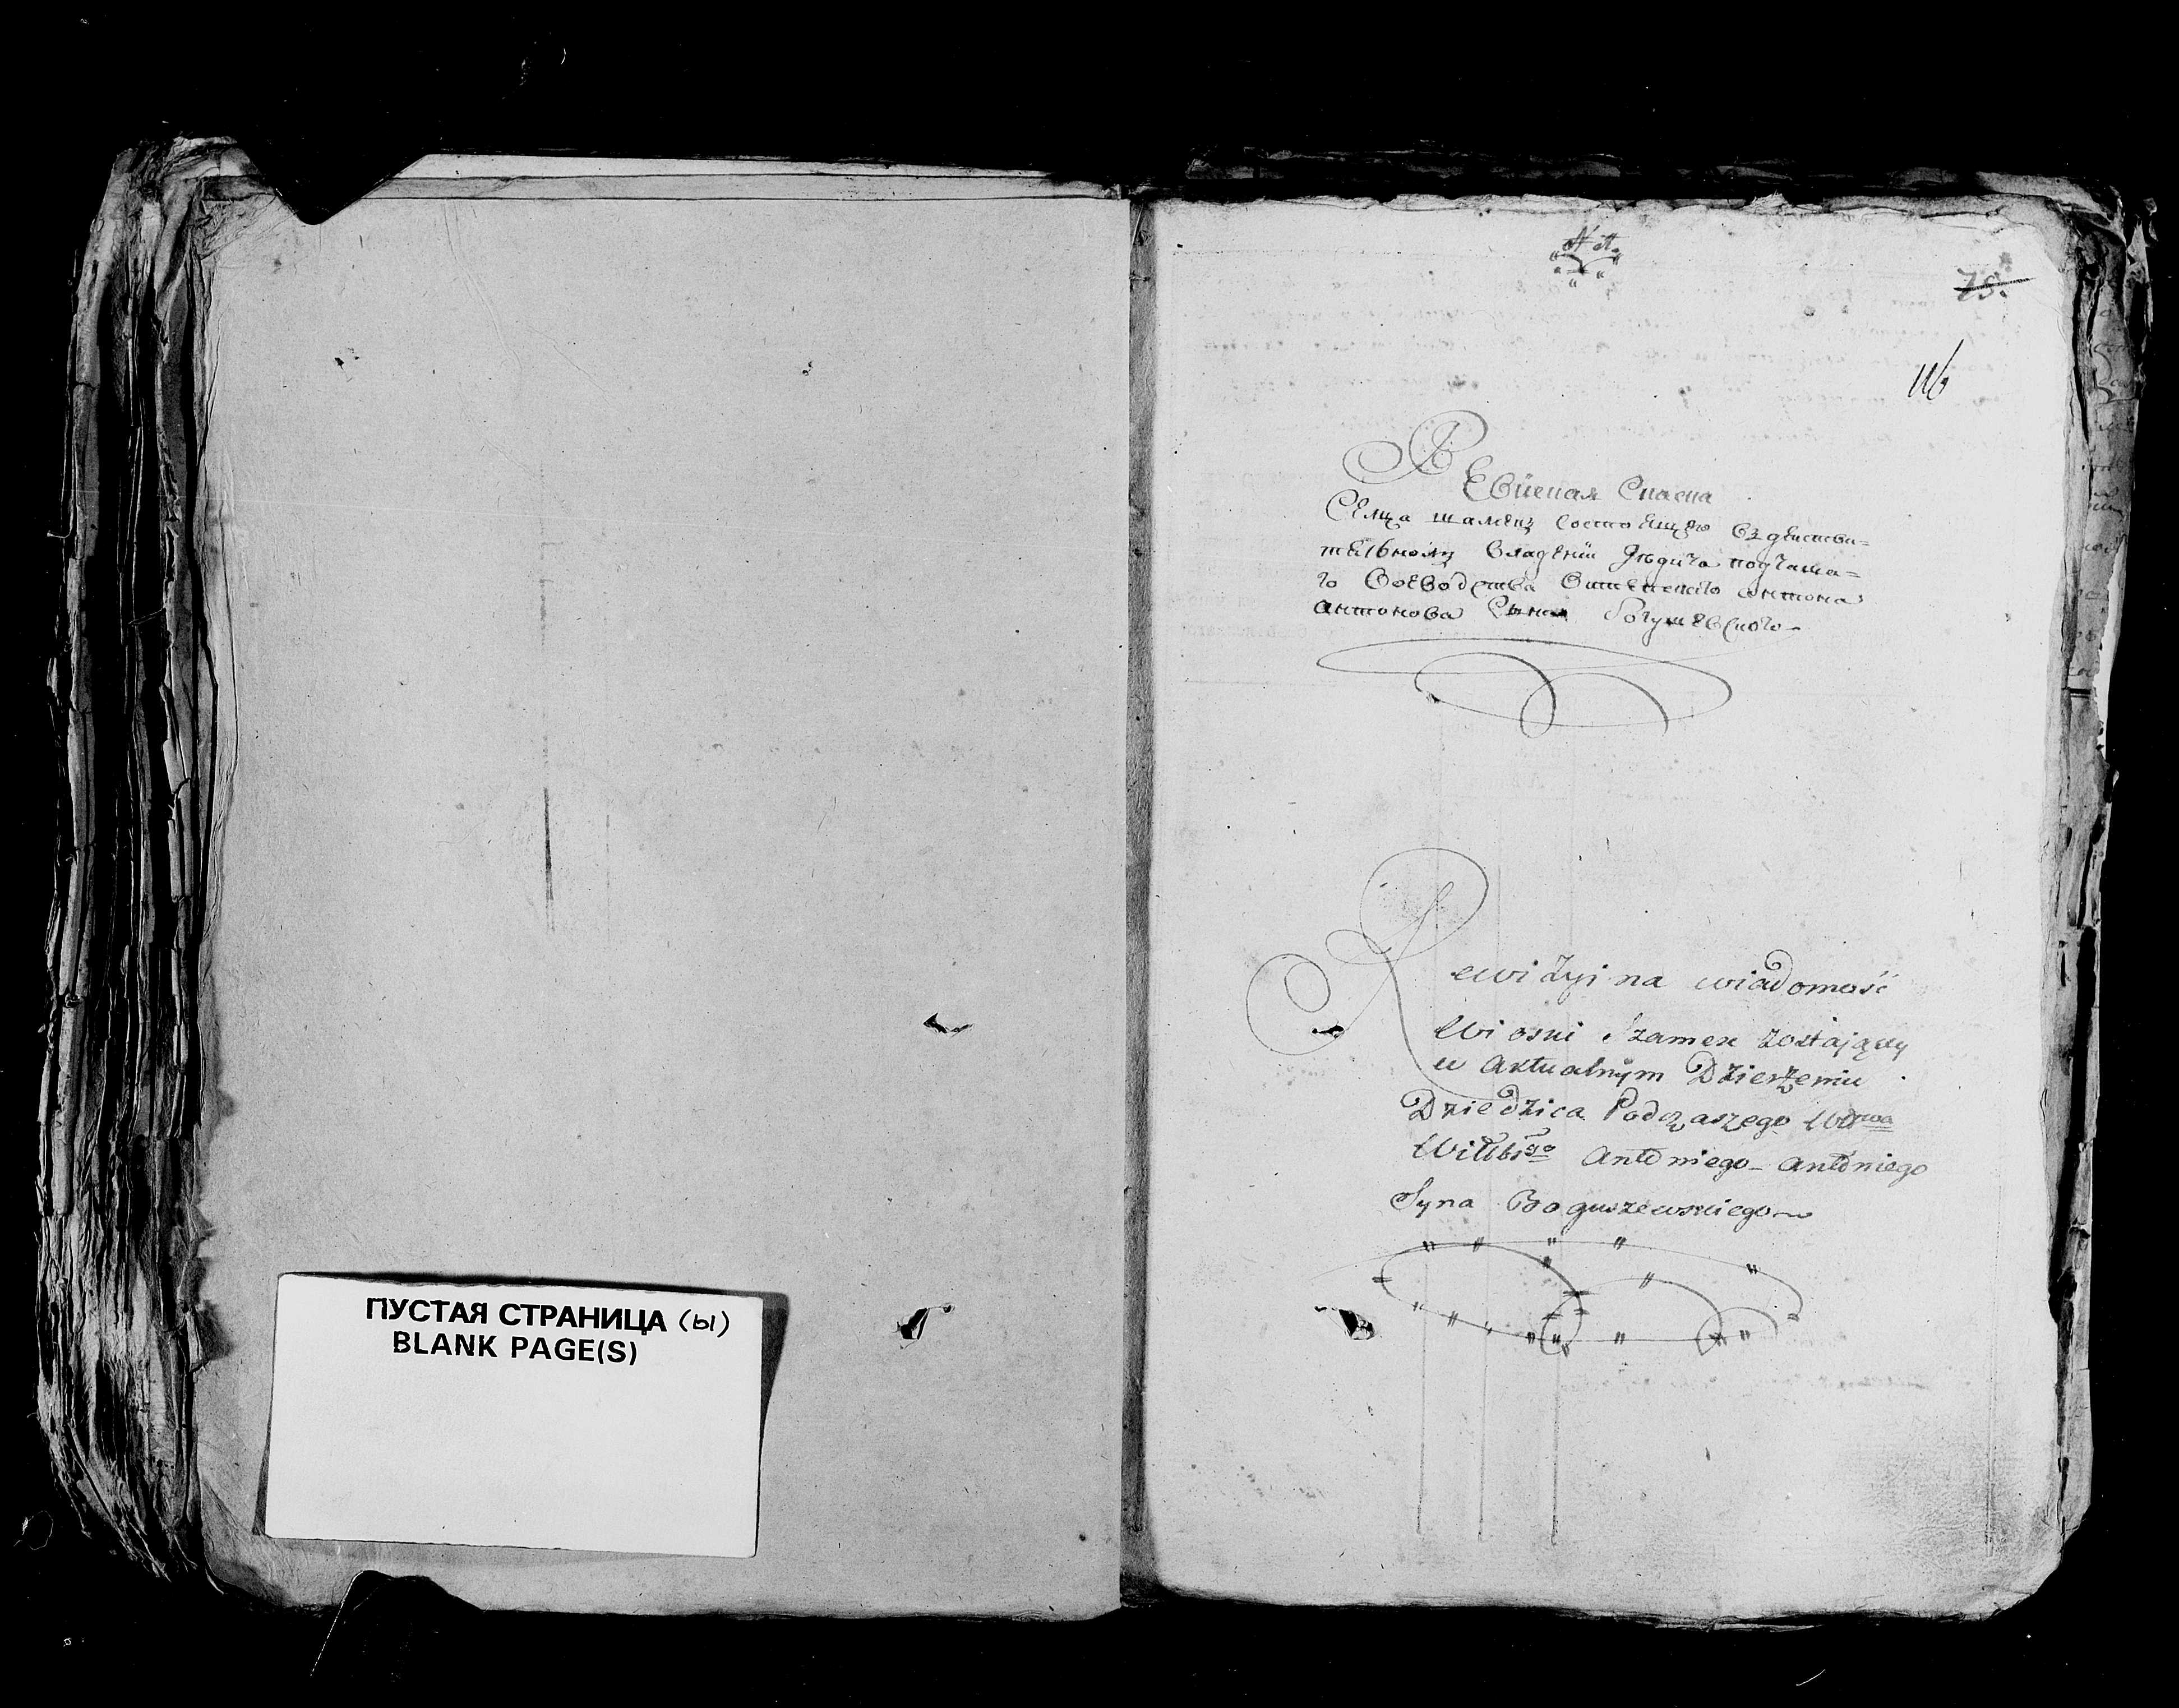 ПУСТАЯ СТРАНИЦА (ы)
BLANK PAGE(S)
75.
116
Ревизская Сказка
Селца Шаменъ состоящего въ деистви=
тельномъ владении дѣдича подчаша=
го Воеводства Витепского Антона
Антонова Сына Богушевского
Rewizyina wiadomość
Wioski Szamen zostaiącey
w Aktualnym Dzierżeniu
Dziedzica Podczaszego Wdztwa
Wittbsgo Antoniego Antoniego
Syna Boguszewskiego